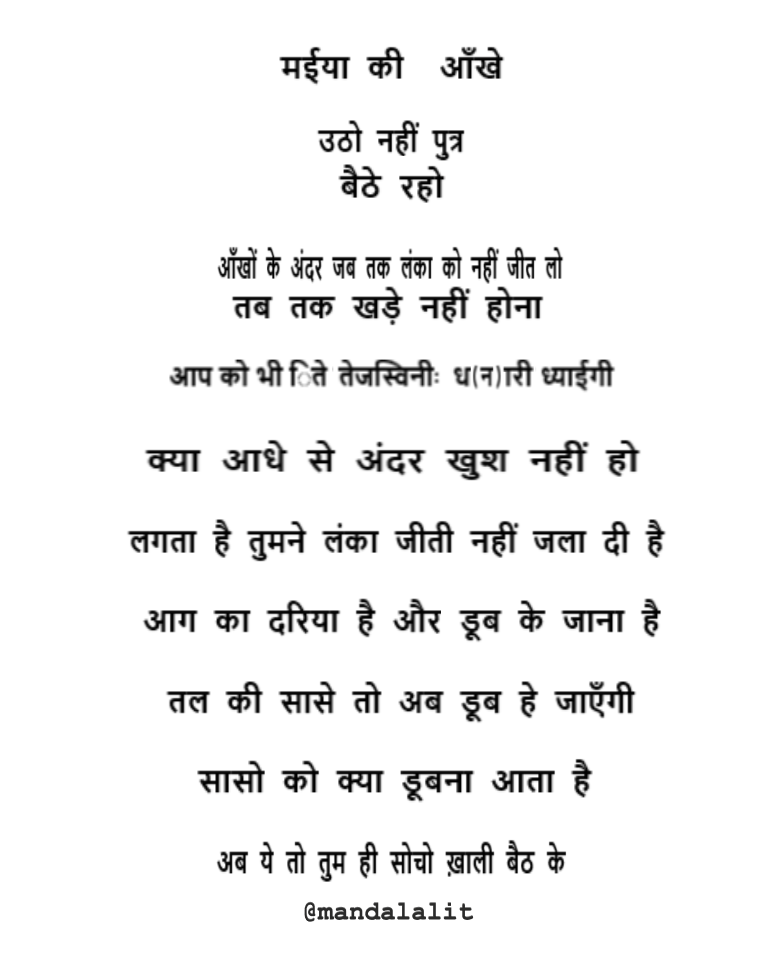 मईया की आँखे
उठो नहीं पुत्र
बैठे रहो
आँखों के अंदर जब तक लंका को नहीं जीत लो
तब तक खड़े नहीं होना
आप को भी िते तेजस्विनीः ध(न)ारी ध्याईगी
क्या आधे से अंदर खुश नहीं हो
लगता है तुमने लंका जीती नहीं जला दी है
आग का दरिया है और डूब के जाना है
तल की सासे तो अब डूब हे जाएँगी
सासो को क्या डूबना आता है
अब ये तो तुम ही सोचो ख़ाली बैठ के
@mandalalit